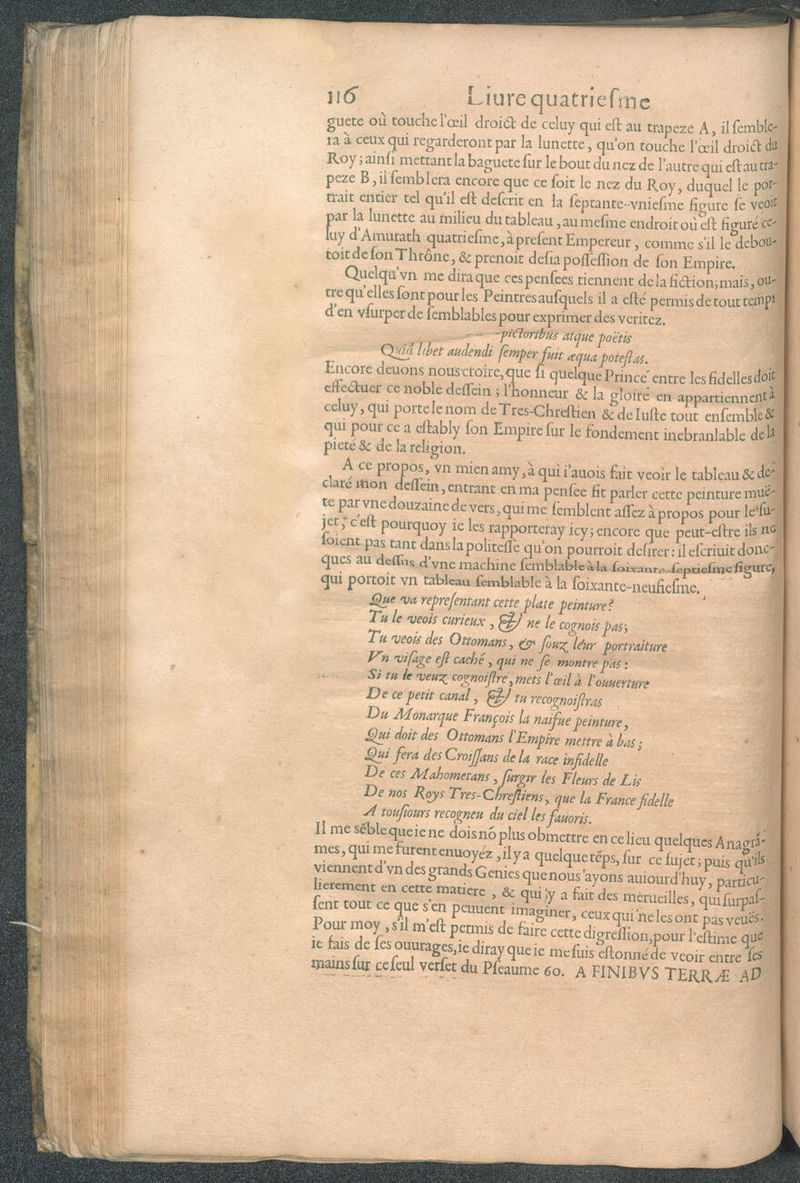 116 Liure quatriesme
guete où touche l'œil droict de celuy qui est au trapeze A, il semble-
ra à ceux qui regarderont par la lunette, qu'on touche l'œil droict du
Roy; ainsi mettant la baguete sur le bout du nez de l'autre qui est au tra-
peze B, il semblera encore que ce soit le nez du Roy, duquel le por-
trait entier tel qu'il est descrit en la septante-vniesme figure se veoit
par la lunette au milieu du tableau, au mesme endroit où est figuré ce-
luy d'Amurath quatriesme, à present Empereur, comme s'il le debou-
toit de son Thrône, & prenoit desia possession de son Empire.
Quelqu'vn me dira que ces pensees tiennent de la fiction; mais, ou-
tre qu'elles sont pour les Peintres ausquels il a esté permis de tout temps
d'en vsurper de semblables pour exprimer des veritez.
-pictoribus atque poëtis
Quid libet audendi semper fuit æqua potestas.
Encore deuons nous croire, que si quelque Prince entre les fidelles doit
effectuer ce noble dessein; l'honneur & la gloire en appartiennent à
celuy, qui porte le nom de Tres-Chrestien & de Iuste tout ensemble &
qui pour ce a estably son Empire sur le fondement inebranlable de la
pieté & de la religion.
A ce propos, vn mien amy, à qui i'auois fait veoir le tableau & de-
claré mon dessein, entrant en ma pensee fit parler cette peinture muë-
te par vne douzaine de vers, qui me semblent assez à propos pour le su-
jet, c'est pourquoy ie les rapporteray icy; encore que peut-estre ils ne
soient pas tant dans la politesse qu'on pourroit desirer: il escriuit donc-
ques au dessus d'vne machine semblable à la soixante-septiesme figure,
qui portoit vn tableau semblable à la soixante-neufiesme.
Que va representant cette plate peinture?
Tu le veois curieux, & ne le cognois pas;
Tu veois des Ottomans, & souz leur portraiture
Vn visage est caché, qui ne se montre pas:
Si tu le veux cognoistre, mets l'œil à l'ouuerture
De ce petit canal, & tu recognoistras
Du Monarque François la naifue peinture,
Qui doit des Ottomans l'Empire mettre à bas;
Qui fera des Croissans de la race infidelle
De ces Mahometans, surgir les Fleurs de Lis
De nos Roys Tres-Chrestiens, que la France fidelle
A tousiours recogneu du ciel les fauoris.
Il me sẽble que ie ne dois nõ plus obmettre en ce lieu quelques Anagrã-
mes, qui me furent enuoyéz, il y a quelque tẽps, sur ce sujet; puis qu'ils
viennent d'vn des grands Genies que nous ayons auiourd'huy, particu-
lierement en cette matiere, & qui y a fait des merueilles, qui surpas-
sent tout ce que s'en peuuent imaginer, ceux qui ne les ont pas veuës.
Pour moy, s'il m'est permis de faire cette digression, pour l'estime que
ie fais de ses ouurages, ie diray que ie me suis estonné de veoir entre ses
mains sur ce seul verset du Pseaume 60. A FINIBVS TERRÆ AD